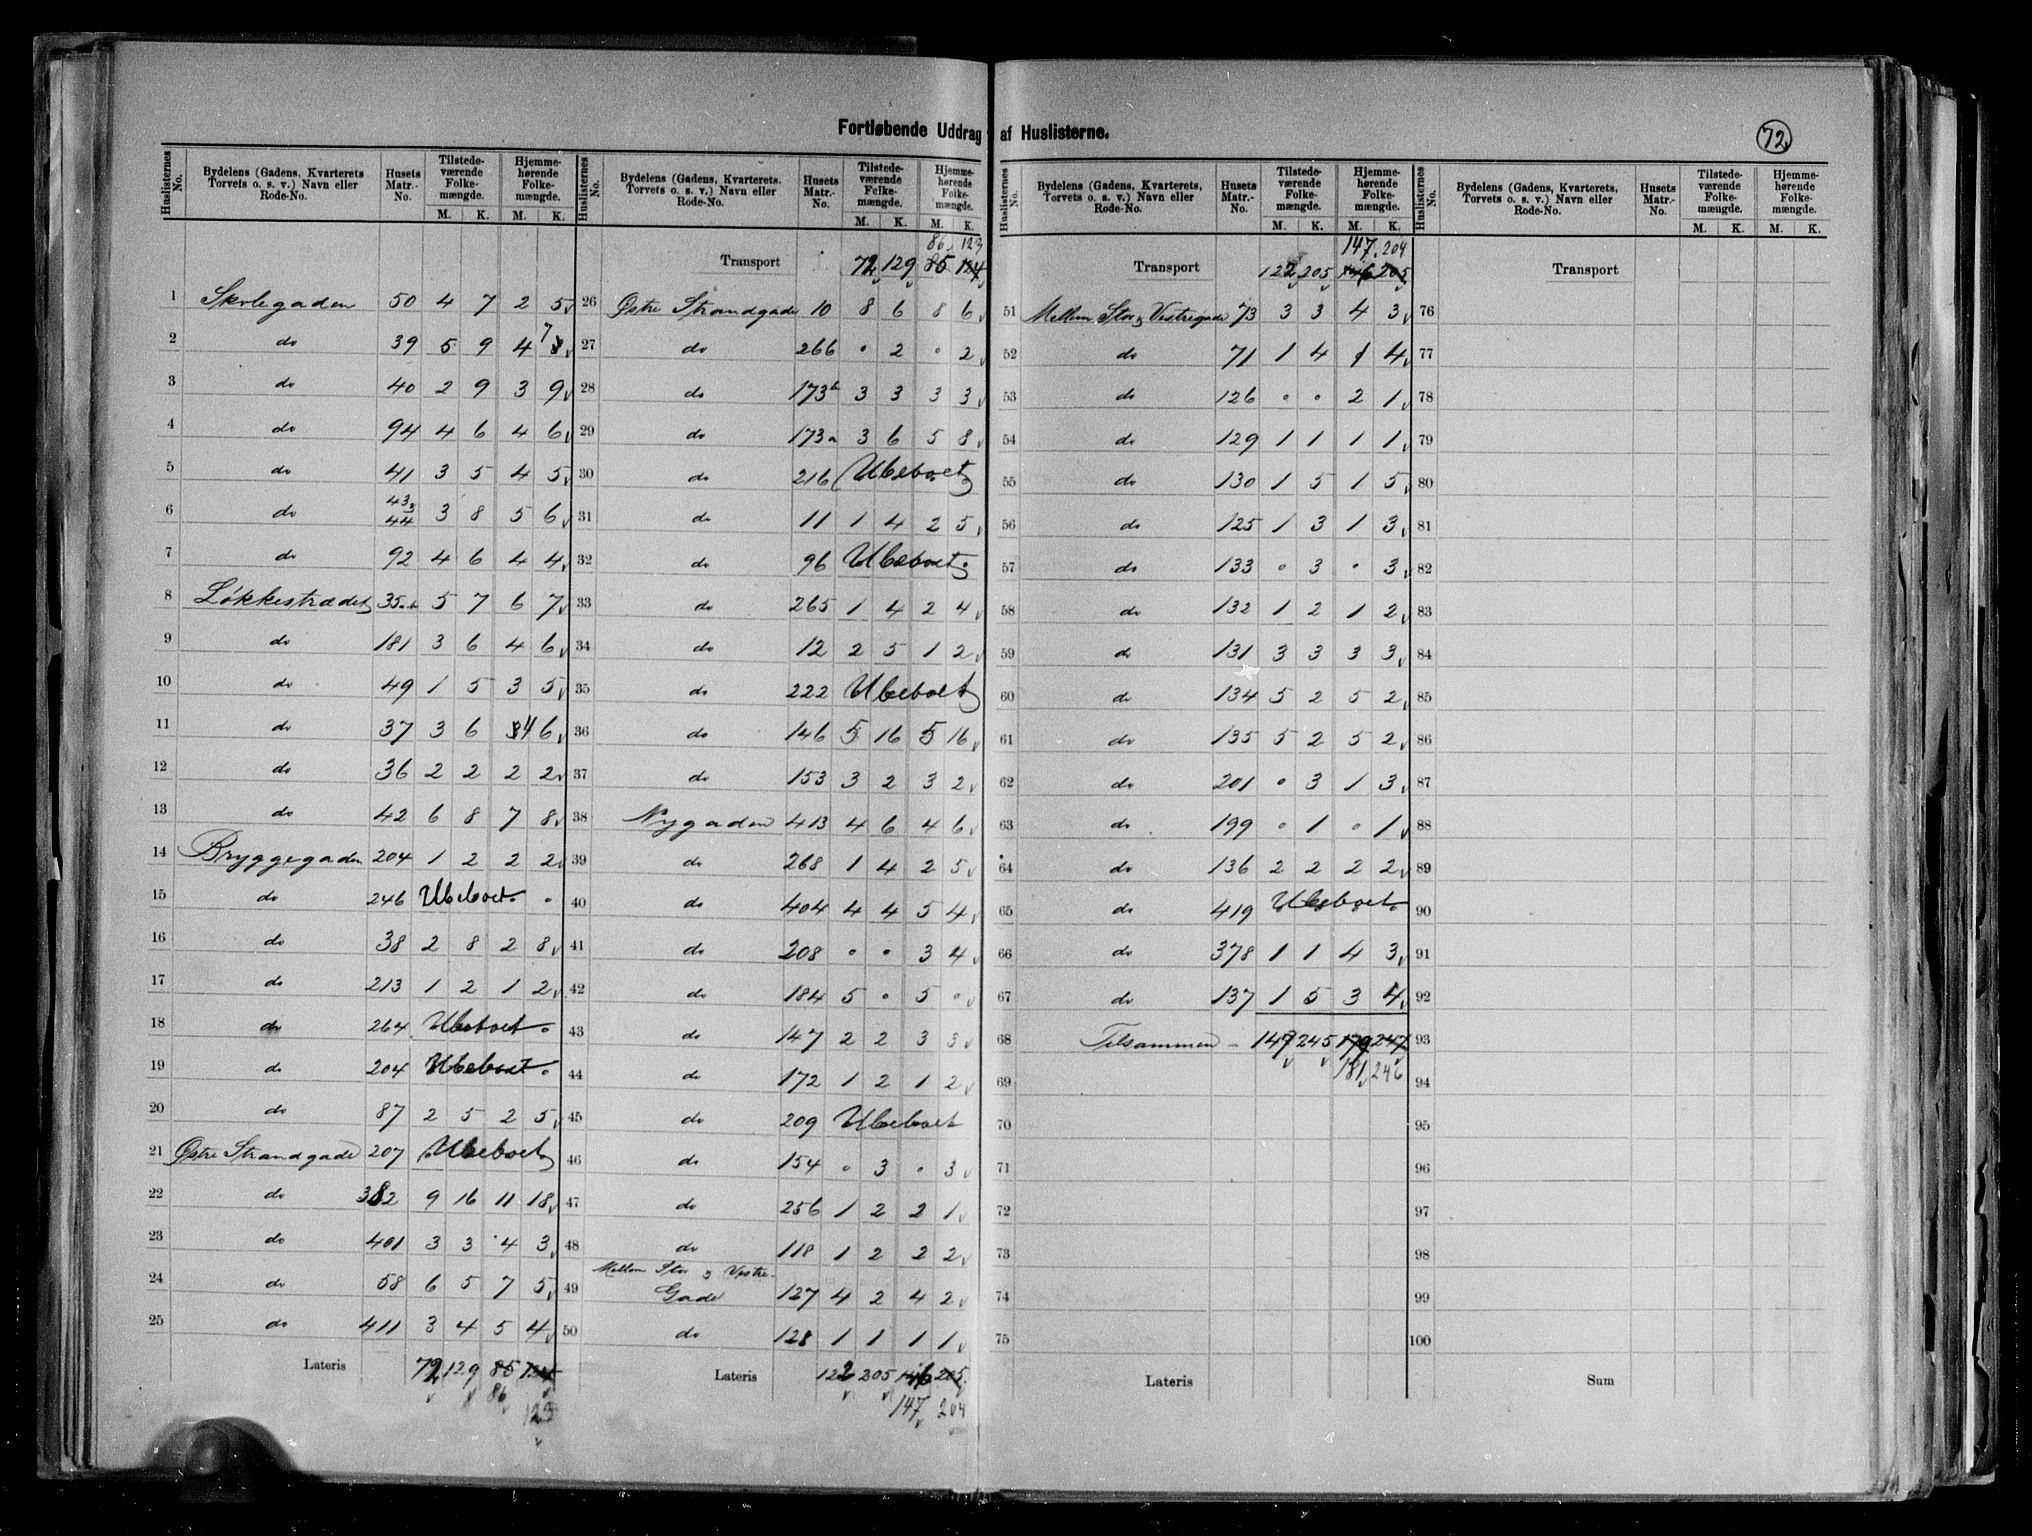 Fortløbende Uddrag af Huslisterne.
72
Huslisternes No. Bydelens (Gadens, Kvarterets Torvets o. s. v.) Navn eller Rode-No. Husets Matr.-No. Tilstedeværende Folkemængde. M. K. Hjemmehørende Folkemængde. M. K.
1 Skolegaden 50 4 7 2 5
2 do 39 5 9 4 7
3 do 40 2 9 3 9
4 do 94 4 6 4 6
5 do 41 3 5 4 5
6 do 43 & 44 3 8 5 6
7 do 92 4 6 4 4
8 Løkkestrædet 35 5 7 6 7
9 do 181 3 6 4 6
10 do 49 1 5 3 5
11 do 37 3 6 4 6
12 do 36 2 2 2 2
13 do 42 6 8 7 8
14 Bryggegaden 204 1 2 2 2
15 do 246 Ubeboet
16 do 38 2 8 2 8
17 do 213 1 2 1 2
18 do 264 Ubeboet
19 do 204 Ubeboet
20 do 87 2 5 2 5
21 Østre Strandgade 207 Ubeboet
22 do 382 9 16 11 18
23 do 401 3 3 4 3
24 do 58 6 5 7 5
25 do 411 3 4 5 4
Lateris 72 129 85 124
86 123
Huslisternes No. Bydelens (Gadens, Kvarterets. Torvets o. s. v.) Navn eller Rode-No. Husets Matr.-No. Tilstedeværende Folkemængde. M. K. Hjemmehørende Folkemængde. M. K.
86 123
Transport 72 129 85 124
26 Østre Strandgade 10 8 6 8 6
27 do 266 " 2 " 2
28 do 173b 3 3 3 3
29 do 173a 3 6 5 8
30 do 216 Ubeboet
31 do 11 1 4 2 5
32 do 96 Ubeboet
33 do 265 1 4 2 4
34 do 12 2 5 1 2
35 do 222 Ubeboet
36 do 146 5 16 5 16
37 do 153 3 2 3 2
38 Nygaden 413 4 6 4 6
39 do 268 1 4 2 5
40 do 404 4 4 5 4
41 do 208 " " 3 4
42 do 184 5 " 5 "
43 do 147 2 2 3 3
44 do 172 1 2 1 2
45 do 209 Ubeboet
46 do 154 " 3 " 3
47 do 256 1 2 2 1
48 do 118 1 2 2 2
49 Mellem Stor & Vestre-Gade 127 4 2 4 2
50 do 128 1 1 1 1
Lateris 122 205 146 205
147 204
Huslisternes No. Bydelens (Gadens, Kvarterets, Torvets o. s. v.) Navn eller Rode-No. Husets Matr.-No. Tilstedeværende Folkemængde. M. K. Hjemmehørende Folkemængde. M. K.
147 204
Transport 122 205 146 205
51 Mellem Stor & Vestregade 73 3 3 4 3
52 do 71 1 4 1 4
53 do 126 " " 2 1
54 do 129 1 1 1 1
55 do 130 1 5 1 5
56 do 125 1 3 1 3
57 do 133 " 3 " 3
58 do 132 1 2 1 2
59 do 131 3 3 3 3
60 do 134 5 2 5 2
61 do 135 5 2 5 2
62 do 201 " 3 1 3
63 do 199 " 1 " 1
64 do 136 2 2 2 2
65 do 419 Ubeboet
66 do 378 1 1 4 3
67 do 137 1 5 3 4
68 Tilsammen - 147 245 179 247
69 181 246
70
71
72
73
74
75
Lateris
Huslisternes No. Bydelens (Gadens, Kvarterets, Torvets o. s. v.) Navn eller Rode-No. Husets Matr.-No. Tilstedeværende Folkemængde. M. K. Hjemmehørende Folkemængde. M. K.
Transport
76
77
78
79
80
81
82
83
84
85
86
87
88
89
90
91
92
93
94
95
96
97
98
99
100
Sum